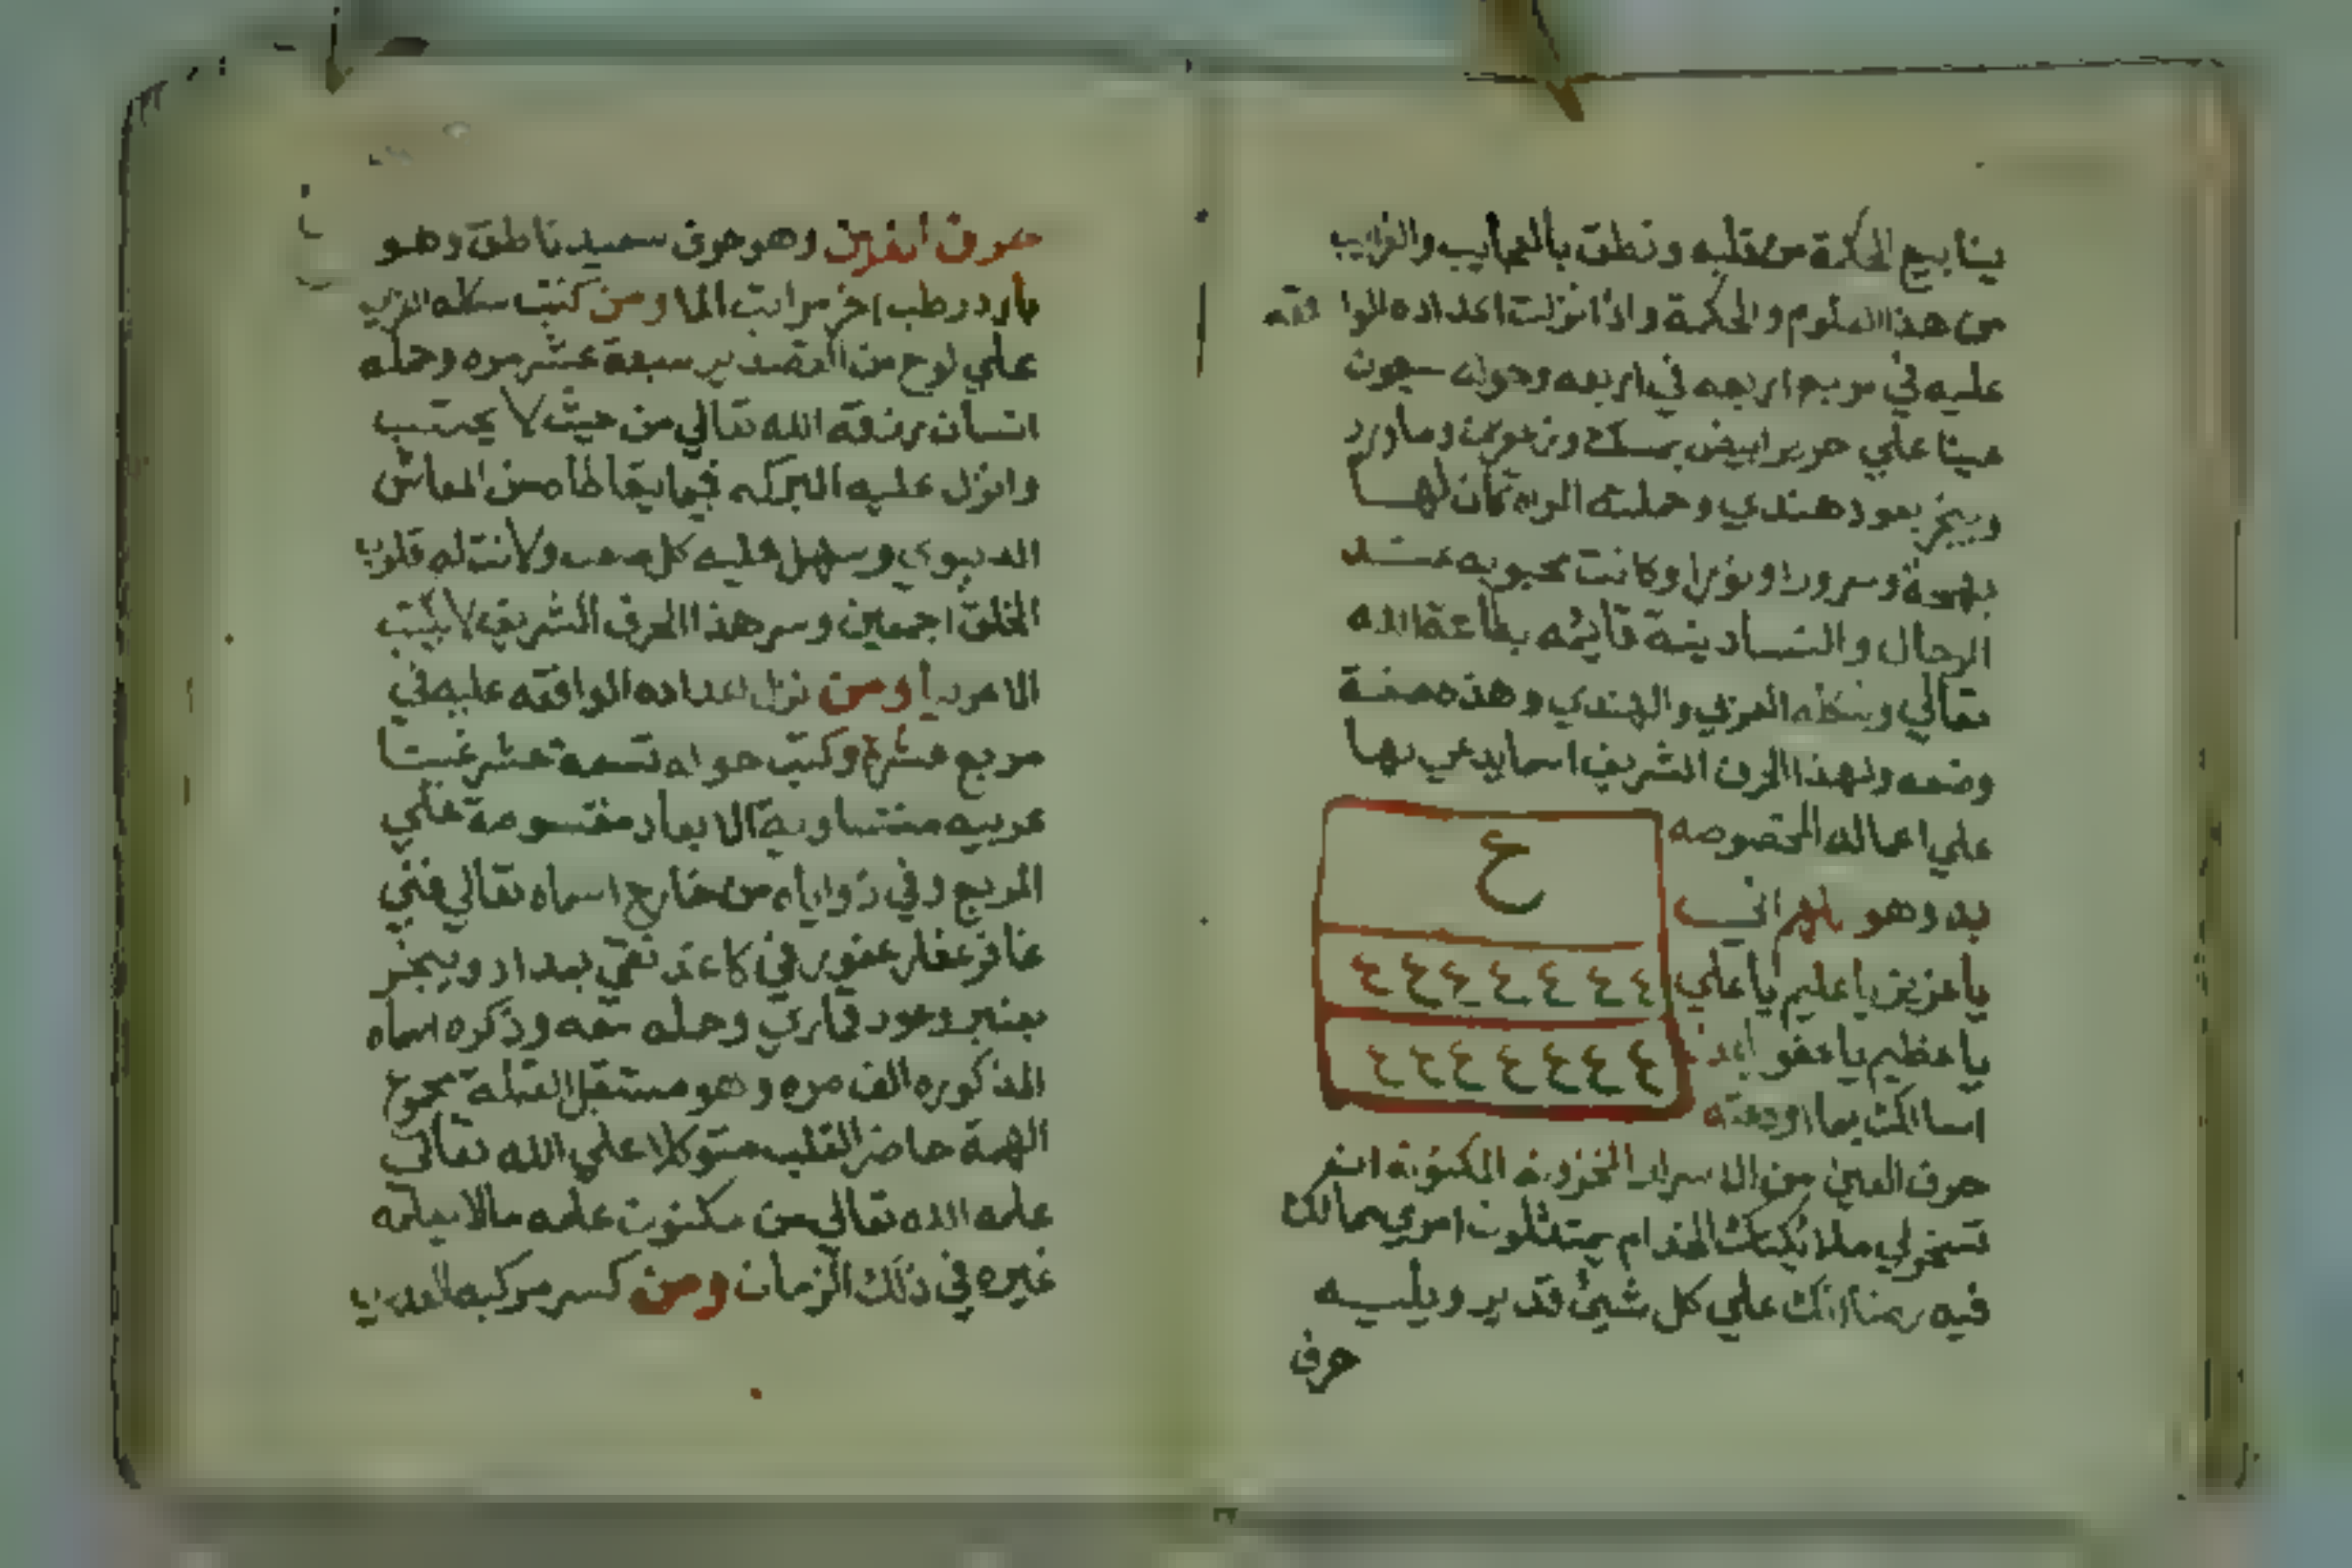 ينابيع الحكمة من قلبه ونطق بالعجايب والغرايب
من هذا العلوم والحكمة واذا نزلت اعداده الموا فقه
عليه في مربع اربعه في اربعه وحوله سبعون
عينا علي حرير ابيض بمسك وزعفران وماورد
وبخر بعود هندي وحملته المراه كان لها
بهجة وسرورا ونورا وكانت محبوبه عند
الرجال والنسا دينة قايمه بطاعة الله
تعالي وشكله العربي والهندي وهذه صفة
وضعه ولهذا الحرف الشريف اسما يدعي بها
علي اعماله المخصوصه
به وهو اللهم اني
يا عزيز يا عليم يا علي
يا عظيم يا عفو
اسالك بما اودعته
حرف العين من الاسرار المخزونه المكنونه ان
تسخر لي ملايكتك الخدام يمتثلون امري بما لك
فيه رضا انك علي كل شيئ قدير ويليه
حرف
ع
٤ ٤ ٤ ٤ ٤ ع ٤
٤ ٤ ٤ ٤ ٤ ٤ ٤
حرف الغين وهو حرف سعيد ناطق وهو
بارد رطب اخر مراتب الما ومن كتب شكله
علي لوح من القصدير سبعة عشر مره وحمله
انسان رزقه الله تعالي من حيث لا يحتسب
وانزل عليه البركه فيما يتعاطاه من المعاش
الدنيوي وسهل عليه كل صعب ولانت له قلوب
الخلق اجمعين وسر هذا الحرف الشريف لا يكتب
الا مربعا ومن نزل اعداده الوافقه عليه في
مربع عشرة وكتب حوله تسعة عشر غينا
عربيه متساوية الابعاد مقسومة علي
المربع وفي زواياه من خارج اسماه تعالي غني
غافر غفار غفور في كاغد نقي بمداد وبخر
بعنبر وعود قماري وحمله معه وذكره اسماه
المذكوره الف مره وهو مستقبل القبلة مجموع
الهمة حاضر القلب متوكلا علي الله تعالي
علمه الله تعالي من مكنون علمه مالا يعلمه
غيره في ذلك الزمان ومن كسر مركبه